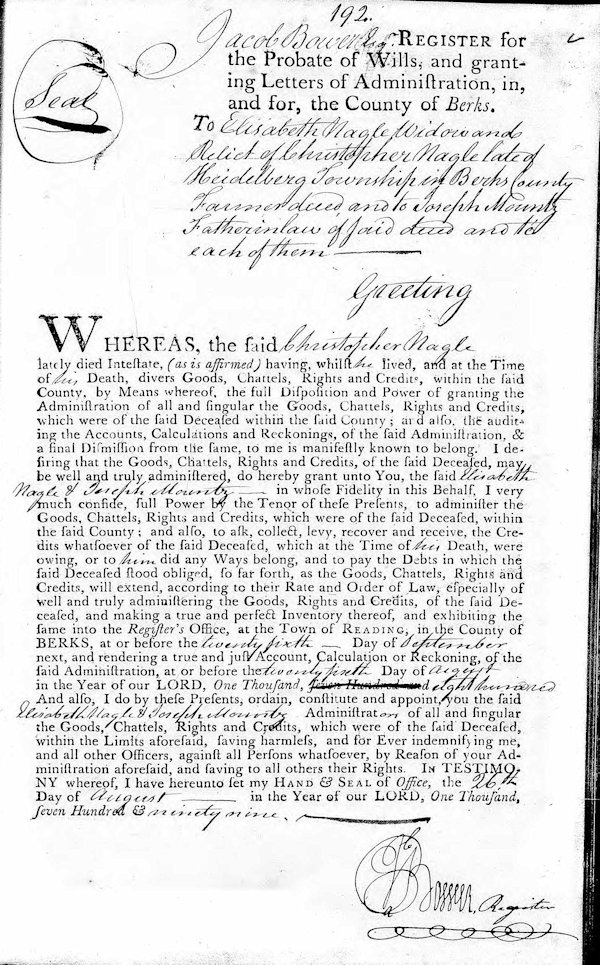 192.
Seal
Jacob Bower Esqr. REGISTER for
the Probate of Wills, and grant-
ing Letters of Administration, in,
and for, the County of Berks.
To Elisabeth Nagle Widow and
Relict of Christopher Nagle late of
Heidelberg Township in Berks County
Farmer deced and to Joseph Mountz
Father in law of said deced and to
each of them
Greeting
WHEREAS, the said Christopher Nagle
lately died Intestate, (as is affirmed) having, whilst he lived, and at the Time
of his Death, divers Goods, Chattels, Rights and Credits, within the said
County, by Means whereof, the full Disposition and Power of granting the
Administration of all and singular the Goods, Chattels, Rights and Credits,
which were of the said Deceased within the said County; and also, the audit-
ing the Accounts, Calculations and Reckonings, of the said Administration, &
a final Dismission from the same, to me is manifestly known to belong. I de-
siring that the Goods, Chattels, Rights and Credits, of the said Deceased, may
be well and truly administered, do hereby grant unto You, the said Elisabeth
Nagle & Joseph Mountz in whose Fidelity in this Behalf, I very
much confide, full Power by the Tenor of these Presents, to administer the
Goods, Chattels, Rights and Credits, which were of the said Deceased, within
the said County; and also, to ask, collect, levy, recover and receive, the Cre-
dits whatsoever of the said Deceased, which at the Time of his Death, were
owing, or to him did any Ways belong, and to pay the Debts in which the
said Deceased stood obliged, so far forth, as the Goods, Chattels, Rights and
Credits, will extend, according to their Rate and Order of Law, especially of
well and truly administering the Goods, Rights and Credits, of the said De-
ceased, and making a true and perfect Inventory thereof, and exhibiting the
same into the Register's Office, at the Town of READING, in the County of
BERKS, at or before the twenty sixth Day of September
next, and rendering a true and just Account, Calculation or Reckoning, of the
said Administration, at or before the twenty sixth Day of August
in the Year of our LORD, One Thousand, seven Hundred and eight hundred
And also, I do by these Presents, ordain, constitute and appoint, you the said
Elisabeth Nagle & Joseph Mountz Administrators of all and singular
the Goods, Chattels, Rights and Credits, which were of the said Deceased,
within the Limits aforesaid, saving harmless, and for Ever indemnifying me,
and all other Officers, against all Persons whatsoever, by Reason of your Ad-
ministration aforesaid, and saving to all others their Rights. IN TESTIMO-
NY whereof, I have hereunto set my HAND & SEAL of Office, the 26th
Day of August in the Year of our LORD, One Thousand,
seven Hundred & ninety nine.
Register